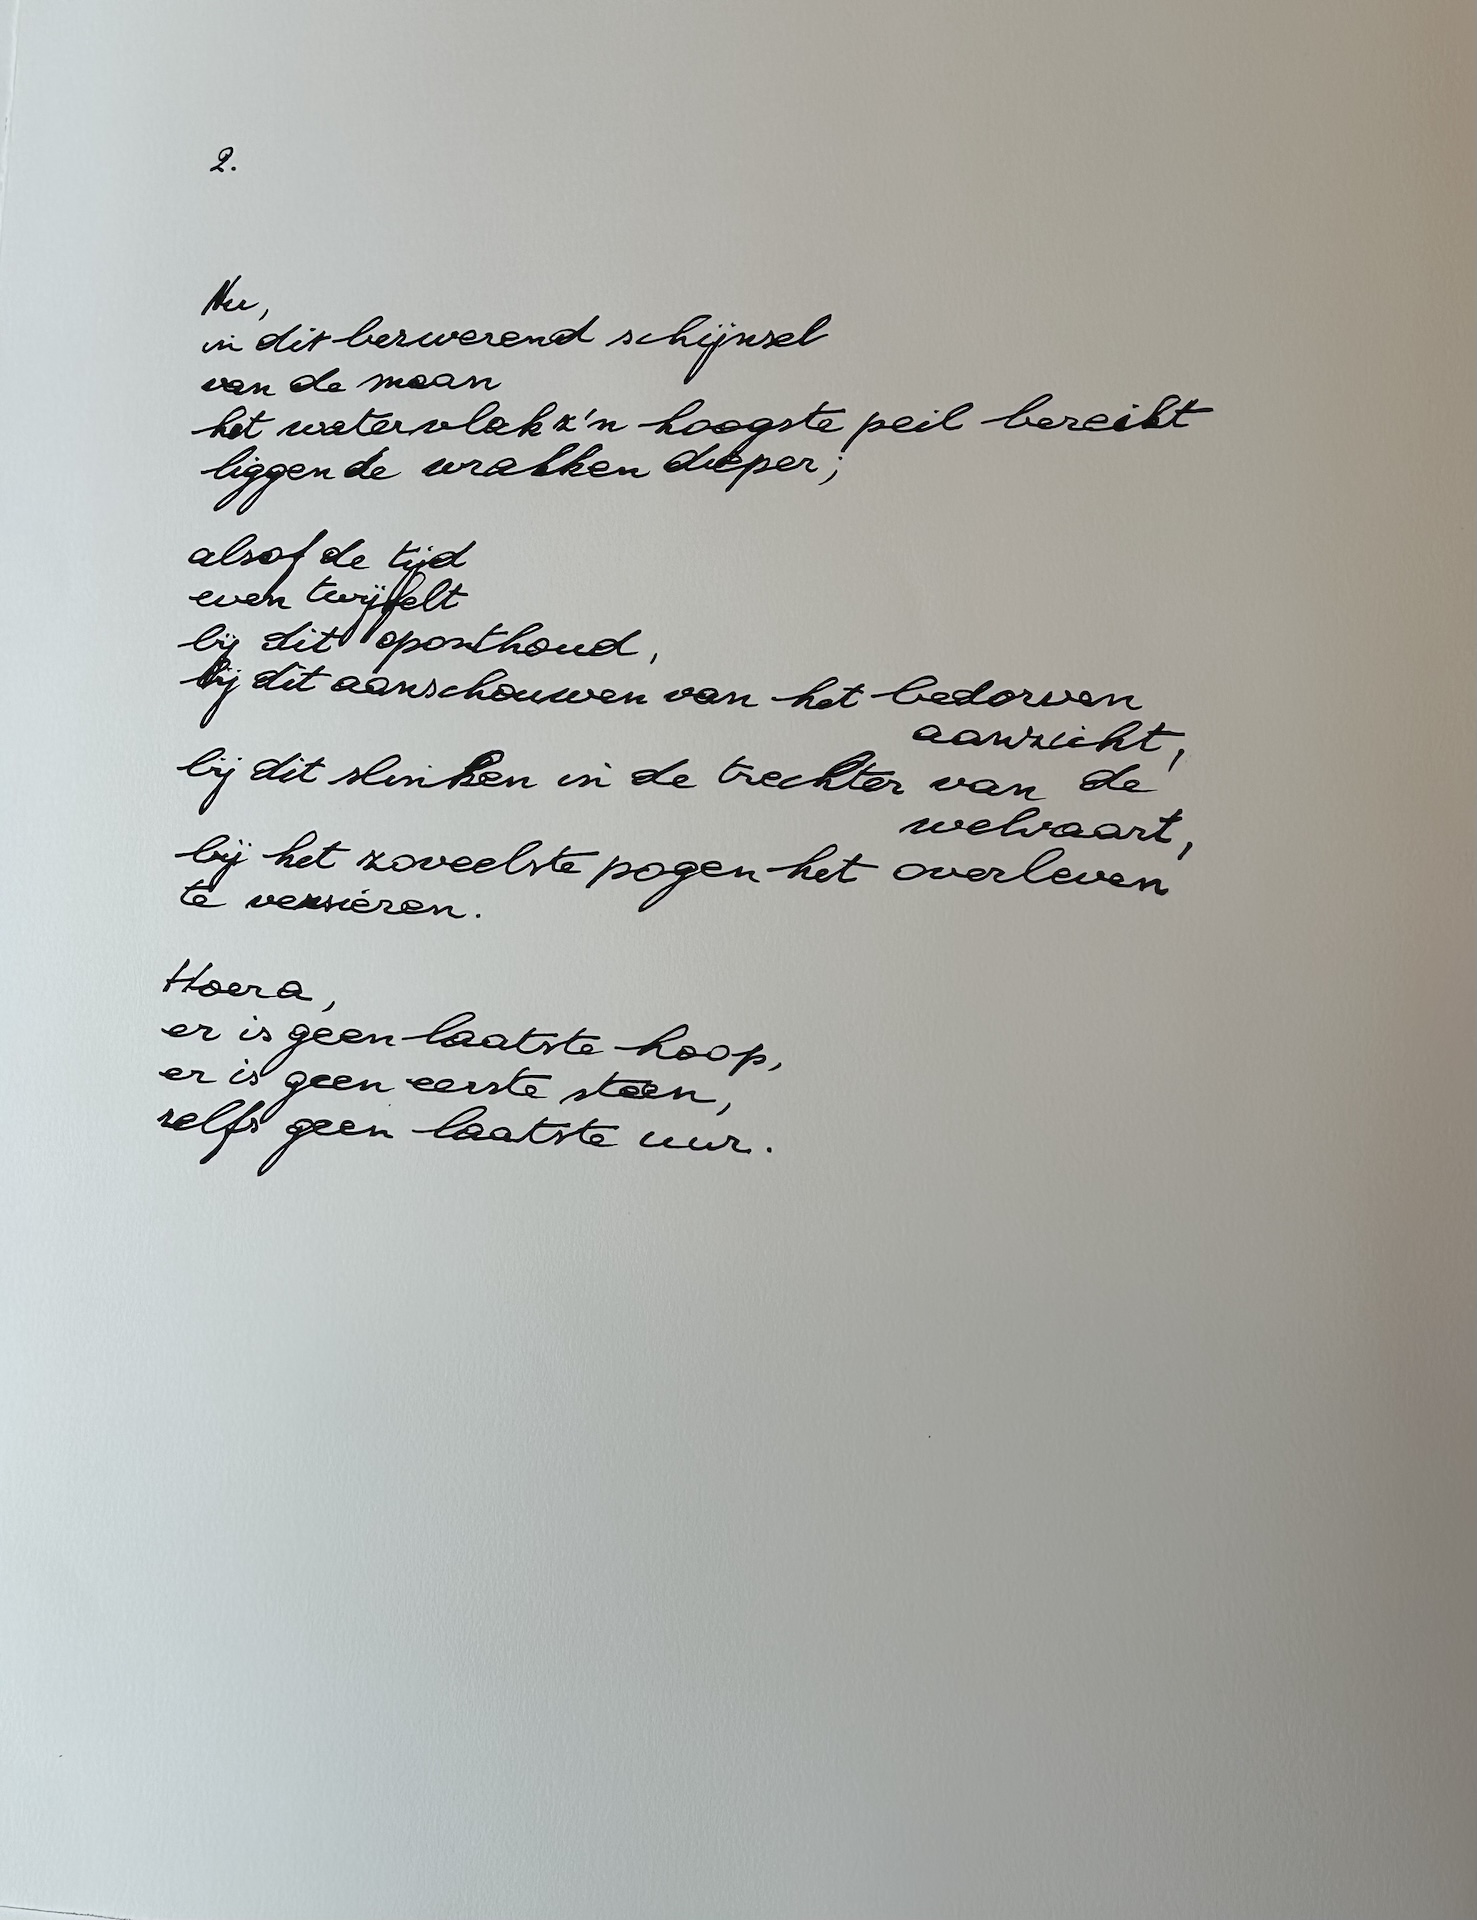 2.
Nu,
in dit bezwerend schijnsel
van de maan
het watervlak z'n hoogste peil bereikt
liggen de wrakken dieper;
alsof de tijd
even twijfelt
bij dit oponthoud,
bij dit aanschouwen van het bedorven
aanzicht,
bij dit slinken in de trechter van de
welvaart,
bij het zoveelste pogen het overleven
te versieren.
Hoera,
er is geen laatste hoop,
er is geen eerste steen,
zelfs geen laatste uur.